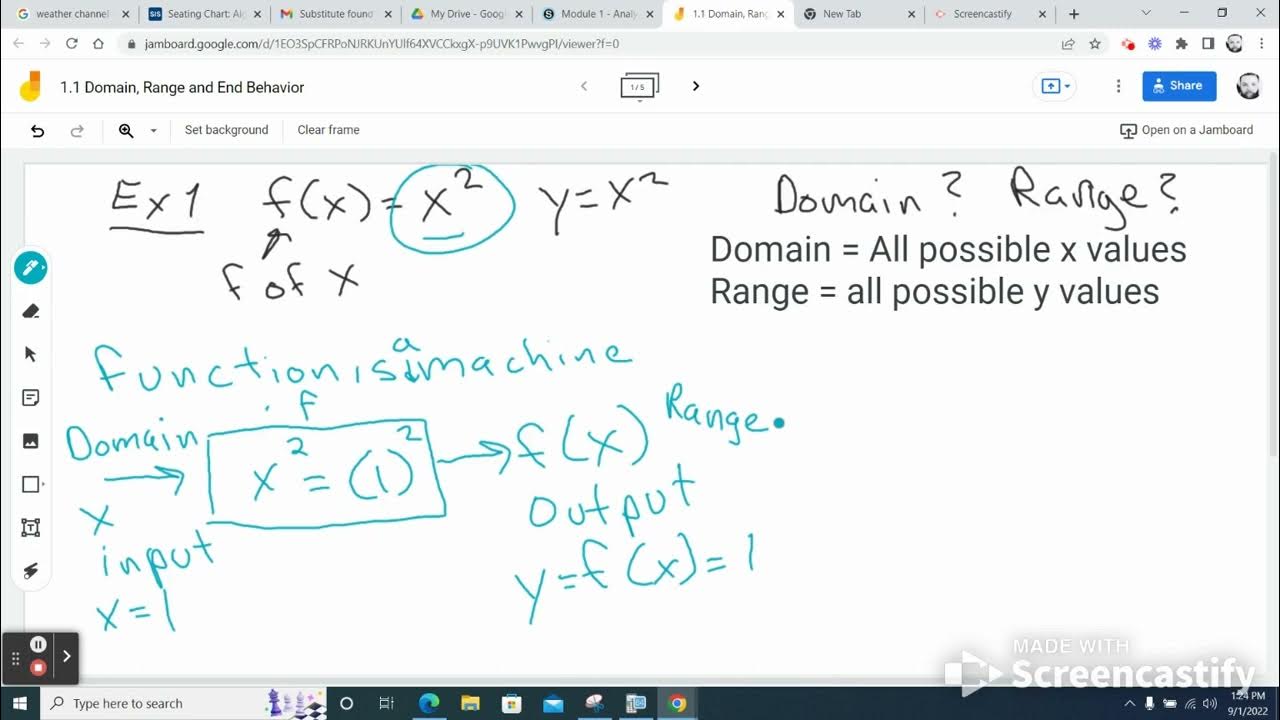 weather channel
Seating Chart: Al
Substitute found
My Drive - Googl
Module 1 - Analy
1.1 Domain, Rang
New Tab
Screencastify
jamboard.google.com/d/1EO3SpCFRPoNJRKUnYUlf64XVCCkxgX-p9UVK1PwvgPI/viewer?f=0
1.1 Domain, Range and End Behavior
1/5
Share
Set background
Clear frame
Open on a Jamboard
Ex 1 f(x) = x² y = x² Domain? Range?
f of x
Domain = All possible x values
Range = all possible y values
function is a machine
f
Domain x² = (1)² f(x) Range
x
input
output
x = 1
y = f(x) = 1
MADE WITH
Screencastify
Type here to search
1:24 PM
9/1/2022